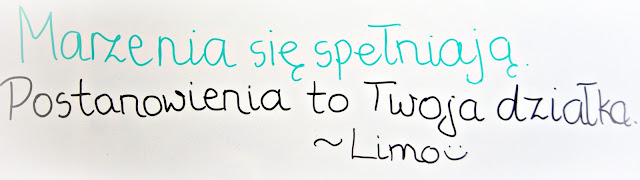 Marzenia się spełniają.
Postanowienia to Twoja działka.
~Limo